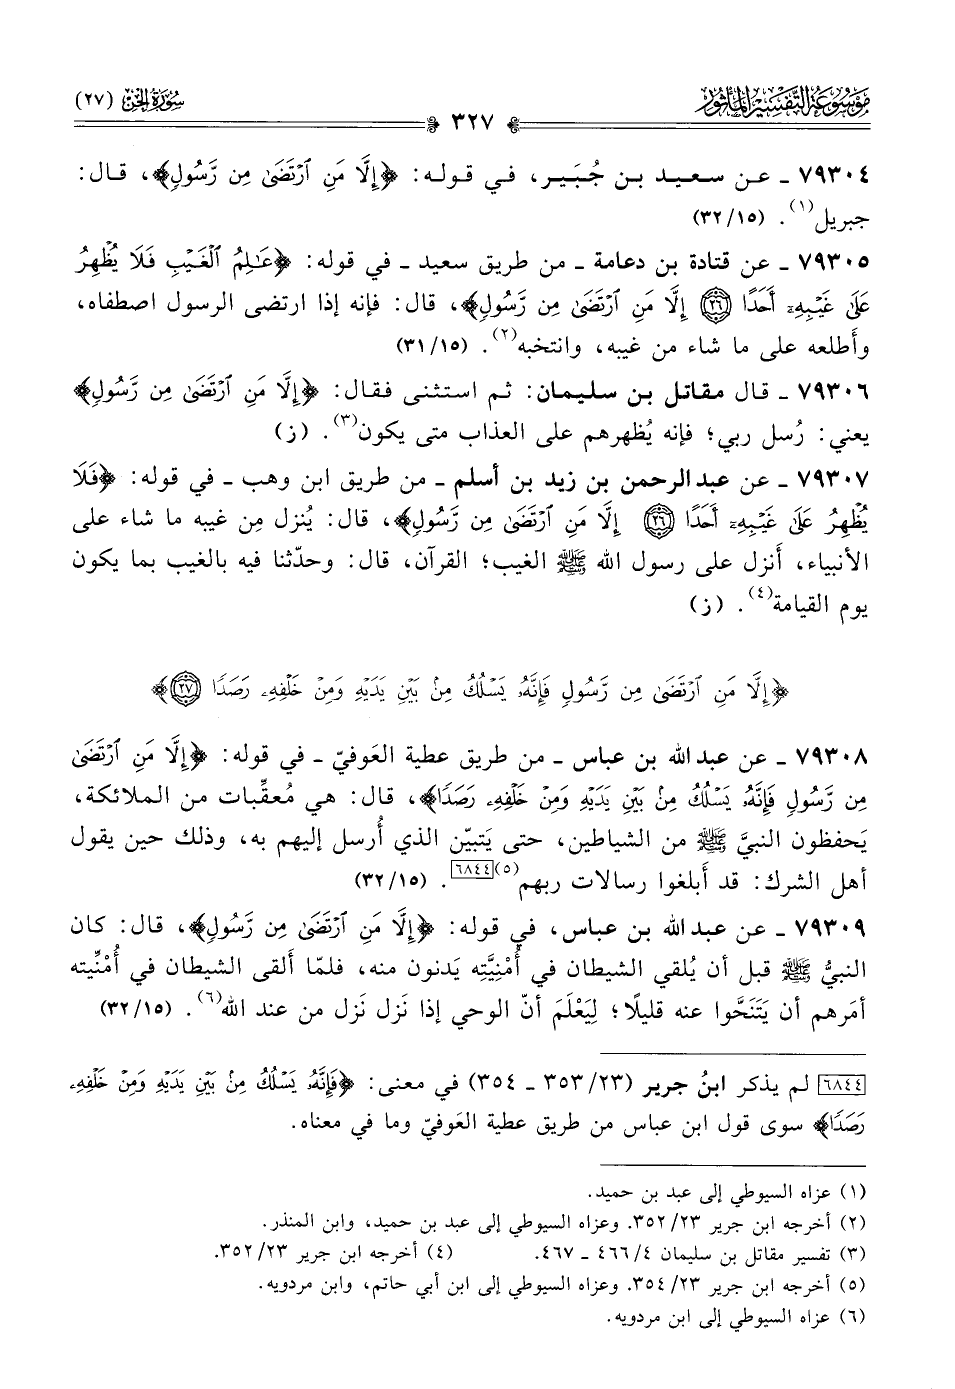 موسوعة التفسير المأثور
سورة الجن (٢٧)
٣٢٧
٧٩٣٠٤ ـ عن سعيد بن جُبَير، في قوله: ﴿إِلَّا مَنِ ٱرْتَضَىٰ مِن رَّسُولٍ﴾، قال:
جبريل(١). (٣٢/١٥)
٧٩٣٠٥ ـ عن قتادة بن دعامة ـ من طريق سعيد ـ في قوله: ﴿عَـٰلِمُ ٱلْغَيْبِ فَلَا يُظْهِرُ
عَلَىٰ غَيْبِهِۦٓ أَحَدًا ٢٦ إِلَّا مَنِ ٱرْتَضَىٰ مِن رَّسُولٍ﴾، قال: فإنه إذا ارتضى الرسول اصطفاه،
وأطلعه على ما شاء من غيبه، وانتخبه(٢). (٣١/١٥)
٧٩٣٠٦ ـ قال مقاتل بن سليمان: ثم استثنى فقال: ﴿إِلَّا مَنِ ٱرْتَضَىٰ مِن رَّسُولٍ﴾
يعني: رُسل ربي؛ فإنه يُظهرهم على العذاب متى يكون(٣). (ز)
٧٩٣٠٧ ـ عن عبد الرحمن بن زيد بن أسلم ـ من طريق ابن وهب ـ في قوله: ﴿فَلَا
يُظْهِرُ عَلَىٰ غَيْبِهِۦٓ أَحَدًا ٢٦ إِلَّا مَنِ ٱرْتَضَىٰ مِن رَّسُولٍ﴾، قال: يُنزل مِن غيبه ما شاء على
الأنبياء، أنزل على رسول الله ﷺ الغيب؛ القرآن، قال: وحدّثنا فيه بالغيب بما يكون
يوم القيامة(٤). (ز)
﴿إِلَّا مَنِ ٱرْتَضَىٰ مِن رَّسُولٍ فَإِنَّهُۥ يَسْلُكُ مِنۢ بَيْنِ يَدَيْهِ وَمِنْ خَلْفِهِۦ رَصَدًا ٢٧﴾
٧٩٣٠٨ ـ عن عبد الله بن عباس ـ من طريق عطية العَوفيّ ـ في قوله: ﴿إِلَّا مَنِ ٱرْتَضَىٰ
مِن رَّسُولٍ فَإِنَّهُۥ يَسْلُكُ مِنۢ بَيْنِ يَدَيْهِ وَمِنْ خَلْفِهِۦ رَصَدًا﴾، قال: هي مُعقِّبات من الملائكة،
يَحفظون النبيَّ ﷺ من الشياطين، حتى يَتبيّن الذي أُرسل إليهم به، وذلك حين يقول
أهل الشرك: قد أَبلغوا رسالات ربهم(٥)٦٨٤٤. (٣٢/١٥)
٧٩٣٠٩ ـ عن عبد الله بن عباس، في قوله: ﴿إِلَّا مَنِ ٱرْتَضَىٰ مِن رَّسُولٍ﴾، قال: كان
النبيُّ ﷺ قبل أن يُلقي الشيطان في أُمْنِيَّته يَدنون منه، فلمّا أَلقى الشيطان في أُمْنِّيته
أمَرهم أن يَتَنَحَّوا عنه قليلًا؛ لِيَعْلَمَ أنّ الوحي إذا نَزل نَزل من عند الله(٦). (٣٢/١٥)
٦٨٤٤ لم يذكر ابنُ جرير (٢٣/ ٣٥٣ ـ ٣٥٤) في معنى: ﴿فَإِنَّهُۥ يَسْلُكُ مِنۢ بَيْنِ يَدَيْهِ وَمِنْ خَلْفِهِۦ
رَصَدًا﴾ سوى قول ابن عباس من طريق عطية العَوفيّ وما في معناه.
(١) عزاه السيوطي إلى عبد بن حميد.
(٢) أخرجه ابن جرير ٢٣/ ٣٥٢. وعزاه السيوطي إلى عبد بن حميد، وابن المنذر.
(٣) تفسير مقاتل بن سليمان ٤/ ٤٦٦ ـ ٤٦٧. (٤) أخرجه ابن جرير ٢٣/ ٣٥٢.
(٥) أخرجه ابن جرير ٢٣/ ٣٥٤. وعزاه السيوطي إلى ابن أبي حاتم، وابن مردويه.
(٦) عزاه السيوطي إلى ابن مردويه.